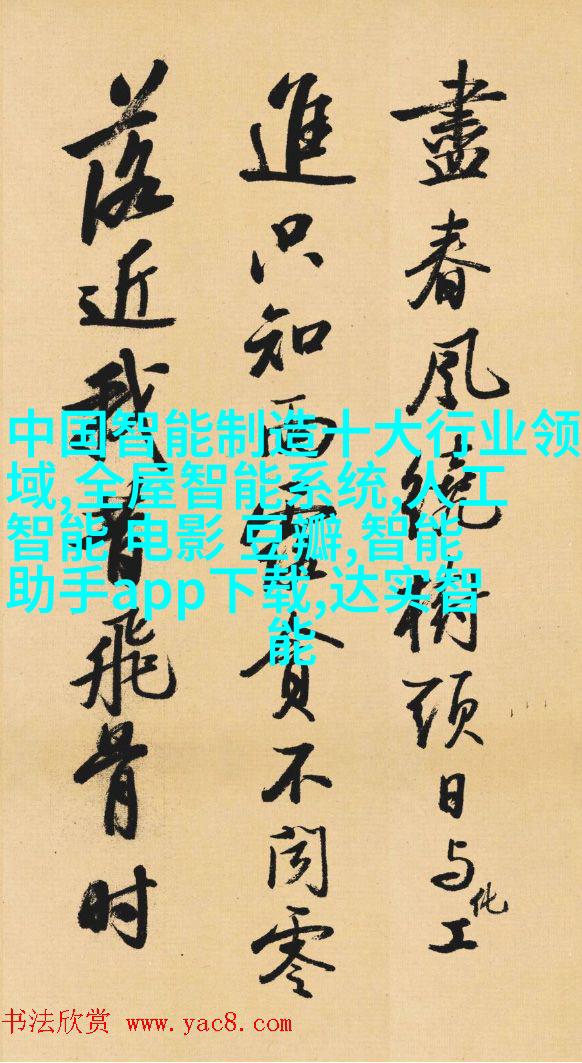 盡春風繞樹頭日与化工
進只知雨露貪不聞零
落近我昔飛骨時
中国智能制造十大行业领
域,全屋智能系统,人工
智能 电影 豆瓣,智能
助手app下载,达实智
能
书法欣赏 www.yac8.com